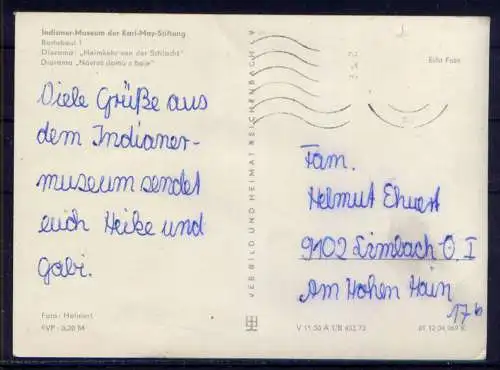 Indianer-Museum der Karl-May-Stiftung
Radebeul 1
Diorama: „Heimkehr von der Schlacht"
Diorama „Návrat domu z boje"
Echt Foto
Viele Grüße aus
dem Indianer-
museum sendet
euch Heike und
Gabi.
VEB BILD UND HEIMAT REICHENBACH i. V.
Fam.
Helmut Ehnert
9102 Limbach-O I
Am Hohen Hain
17b
Foto:
EVP: 0,20 M
V 11 50 A 1/B 403/73
01 12 04 069 K